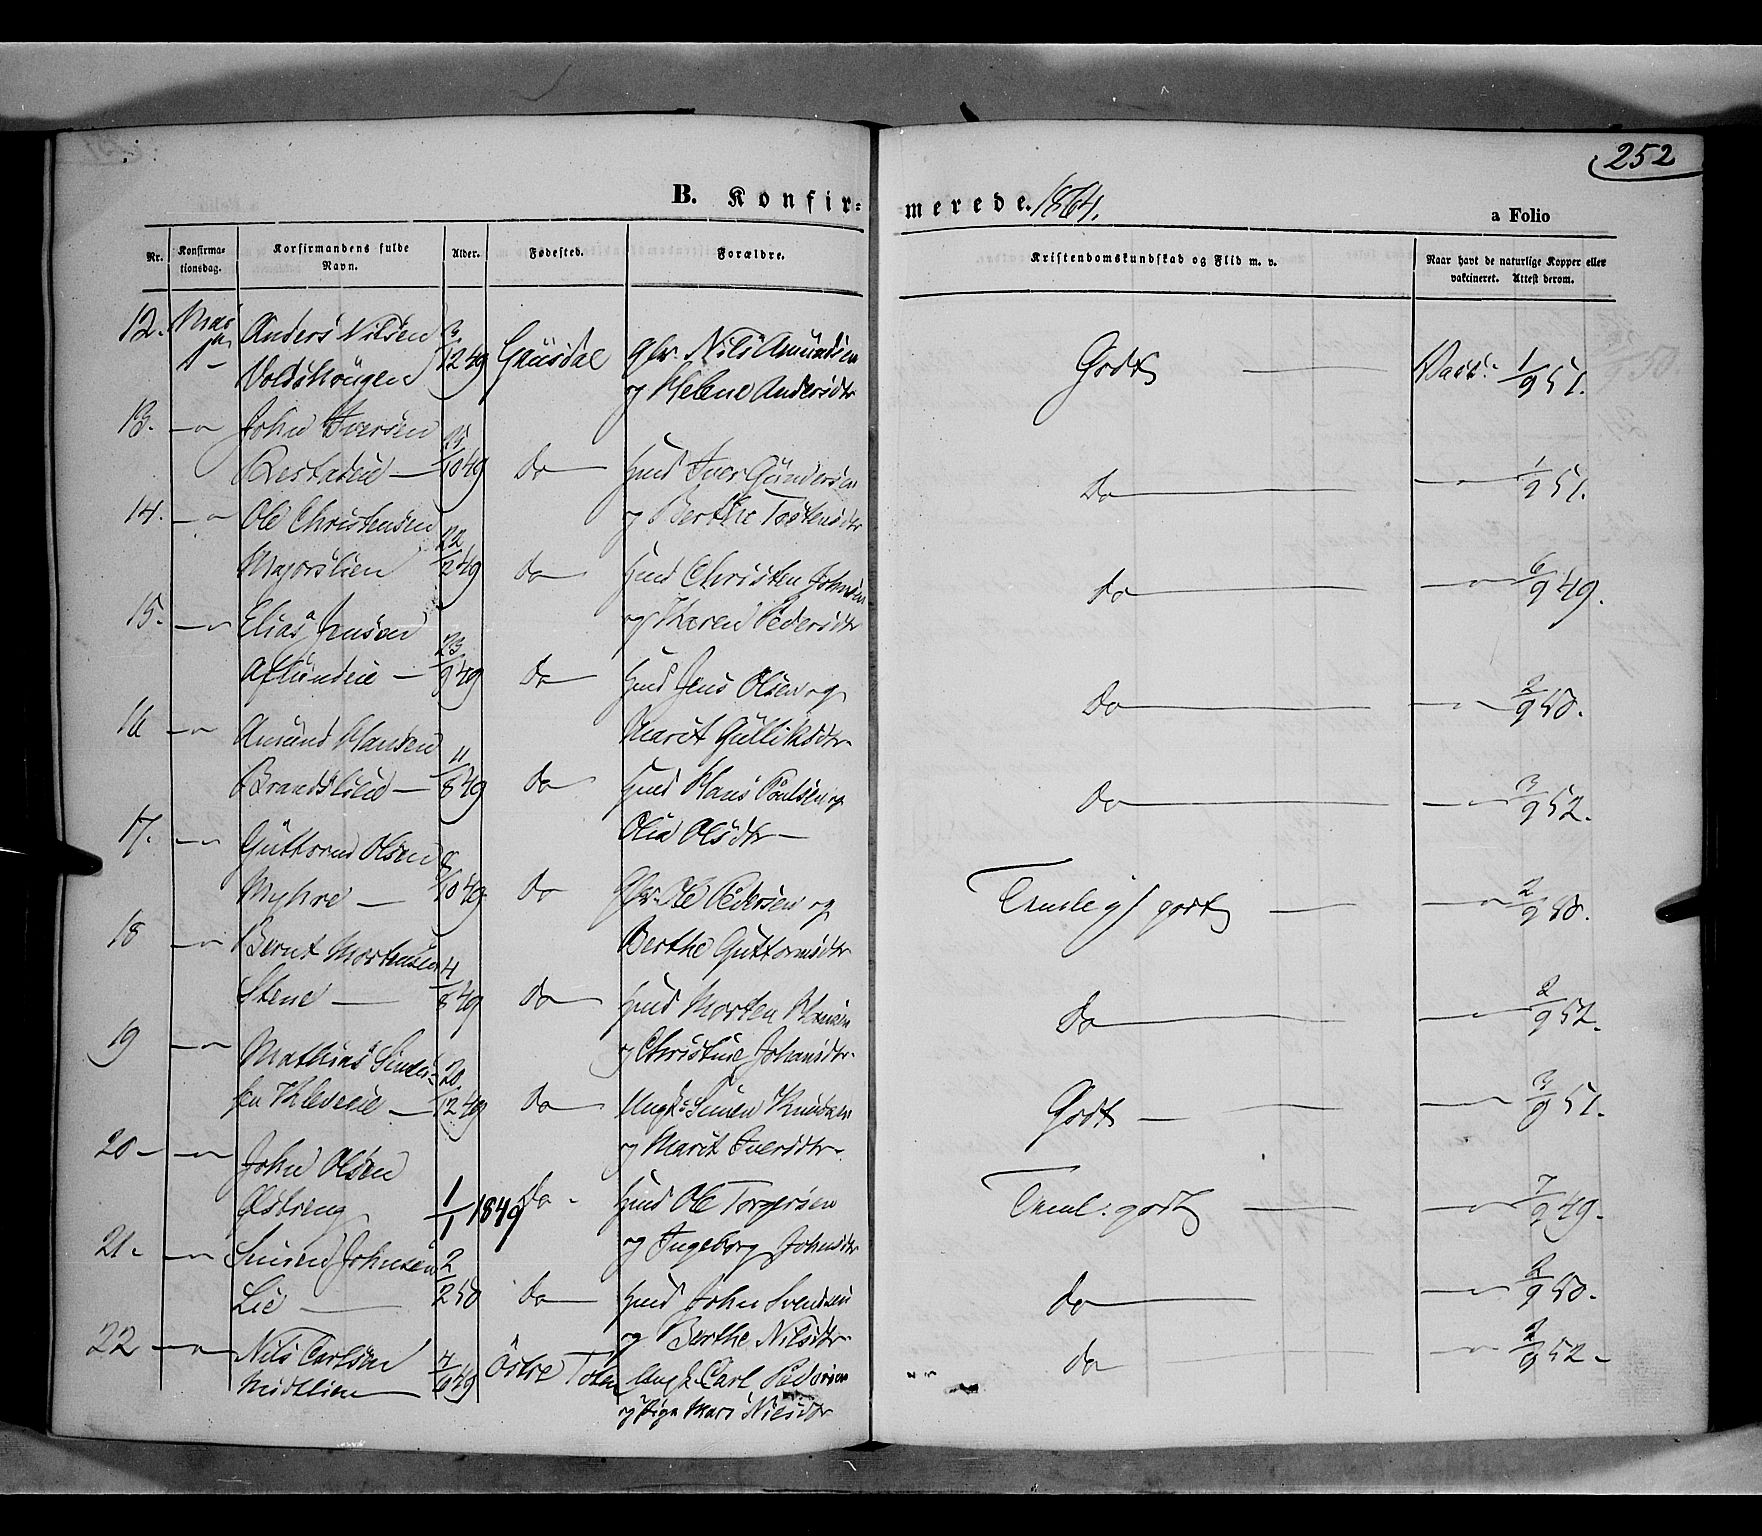 252
B. Konfirmerede. 1864.
a Folio
Nr. Konfirmationsdag. Konfirmandens fulde Navn. Alder. Fødested. Forældre. Kristendomskundskab og Flid m. v. Naar havt de naturlige Kopper eller vakcineret. Attest derom.
12. Anders Nilsen 3/12 49 Gausdal Gbr. Nils Amundsen Godt — Vacc: 1/9 51.
og Helene Andersdtr
13. —"— John Iversen
25/10 49 do Hmd Iver Gundersen do — —"— 1/9 51.
14. —"— Ole Christensen og Berthe Tostensdtr
Majorslien 22/2 49 do Hmd Christen Johnsen do — —"— 6/9 49.
15. —"— Elias Jensen og Karen Pedersdtr
— 23/9 49 do Hmd Jens Olsen og do — —"— 2/9 50.
16 —"— Amund Hansen Marit Gulliksdtr
Brandslien — 11/8 49 do Hmd Hans Paulsen og do — —"— 3/9 52.
17. —"— Guttorm Olsen Olia Olsdtr —
Myhre — 8/10 49 do Gbr. Ole Pedersen og Temelig godt — —"— 2/9 50.
18 —"— Bernt Mortensen Berthe Guttormsdtr
Stene — 4/8 49 do Hmd Morten Hansen do — —"— 2/9 52.
19 —"— Mathias Simen- og Christine Johansdtr.
sen Kleverie — 20/12 49 do Ungk: Simen Knudsen Godt — —"— 3/9 51.
20 — —"— John Olsen og Marit Iversdtr.
Olstreng 1/1 1849 do - Hmd Ole Torgersen Teml: godt — —"— 7/9 49.
21. —"— Simen Johnsen og Ingeborg Johnsdtr
Lie — 2/2 50 do Hmd John Svendsen do — —"— 2/9 50.
22 —"— Nils Carlsen og Berthe Nilsdtr.
Midtlien 4/9 49 Östre Toten Ungk. Carl Pedersen do —"— 2/9 52 -
og Pige Mari Nilsdtr